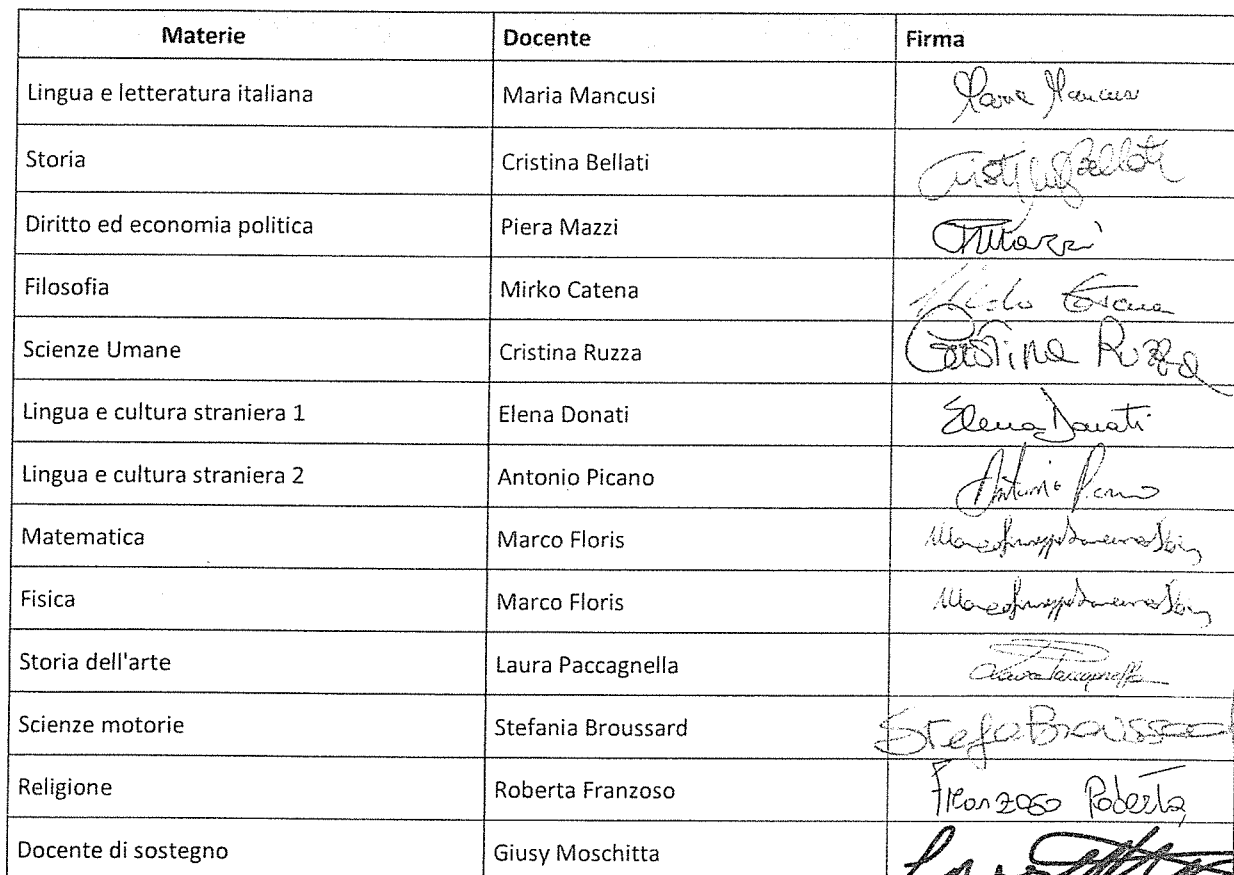 Materie Docente Firma
Lingua e letteratura italiana Maria Mancusi Maria Mancusi
Storia Cristina Bellati Cristina Bellati
Diritto ed economia politica Piera Mazzi Mazzi
Filosofia Mirko Catena
Scienze Umane Cristina Ruzza Cristina Ruzza
Lingua e cultura straniera 1 Elena Donati Elena Donati
Lingua e cultura straniera 2 Antonio Picano Antonio Picano
Matematica Marco Floris
Fisica Marco Floris
Storia dell'arte Laura Paccagnella Laura Paccagnella
Scienze motorie Stefania Broussard Broussard
Religione Roberta Franzoso Franzoso Roberta
Docente di sostegno Giusy Moschitta